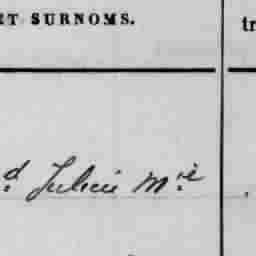 ET SURNOMS. tr
d Julien Mie